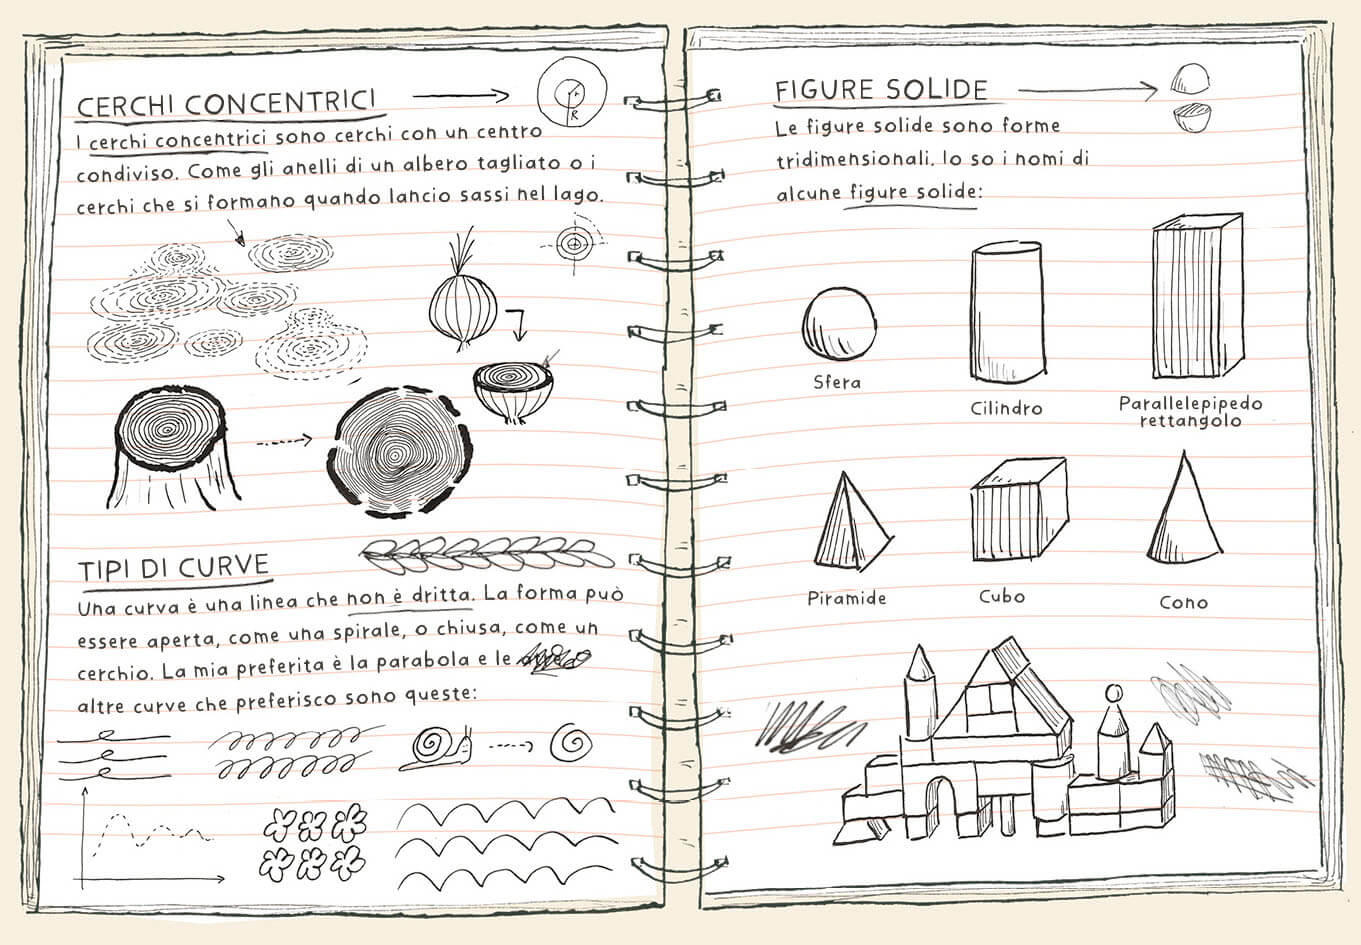 CERCHI CONCENTRICI
r
R
I cerchi concentrici sono cerchi con un centro
condiviso. Come gli anelli di un albero tagliato o i
cerchi che si formano quando lancio sassi nel lago.
TIPI DI CURVE
Una curva è una linea che non è dritta. La forma può
essere aperta, come una spirale, o chiusa, come un
cerchio. La mia preferita è la parabola e le
altre curve che preferisco sono queste:
FIGURE SOLIDE
Le figure solide sono forme
tridimensionali. Io so i nomi di
alcune figure solide:
Sfera
Cilindro
Parallelepipedo
rettangolo
Piramide
Cubo
Cono